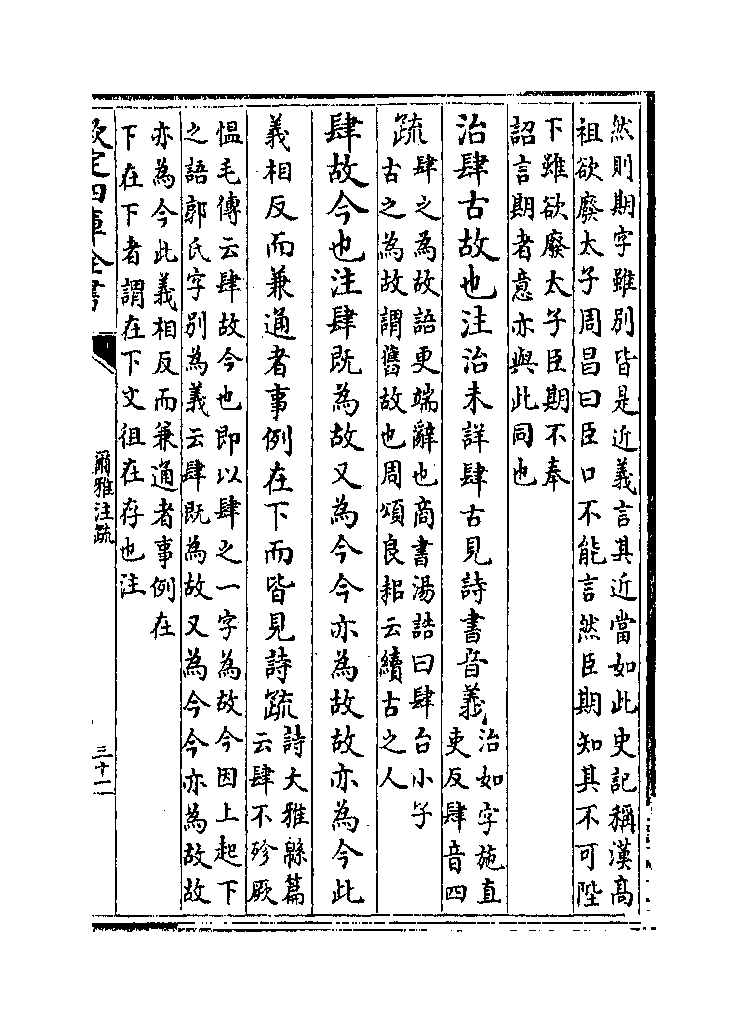 然則期字雖别皆是近義言其近當如此史記稱漢髙
祖欲廢太子周昌曰臣口不能言然臣期知其不可陛
下雖欲廢太子臣期不奉
詔言期者意亦與此同也
治肆古故也注治未詳肆古見詩書音義治如字施直
吏反肆音四
疏肆之為故語更端辭也商書湯誥曰肆台小子
古之為故謂舊故也周頌良耜云續古之人
肆故今也注肆既為故又為今今亦為故故亦為今此
義相反而兼通者事例在下而皆見詩疏詩大雅緜篇
云肆不殄厥
愠毛傳云肆故今也即以肆之一字為故今因上起下
之語郭氏字别為義云肆既為故又為今今亦為故故
亦為今此義相反而兼通者事例在
下在下者謂在下文徂在存也注
欽定四庫全書
爾雅注疏
三十一